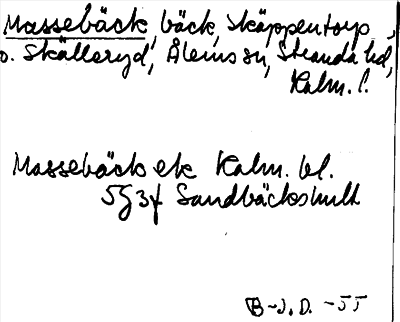 Massebäck, bäck, Skäppentorp
o. Skälleryd, Ålems sn, Stranda hd,
Kalm. l.
Massebäck ek Kalm. bl.
5G3f Sandbäckshult
B-J.D. -55